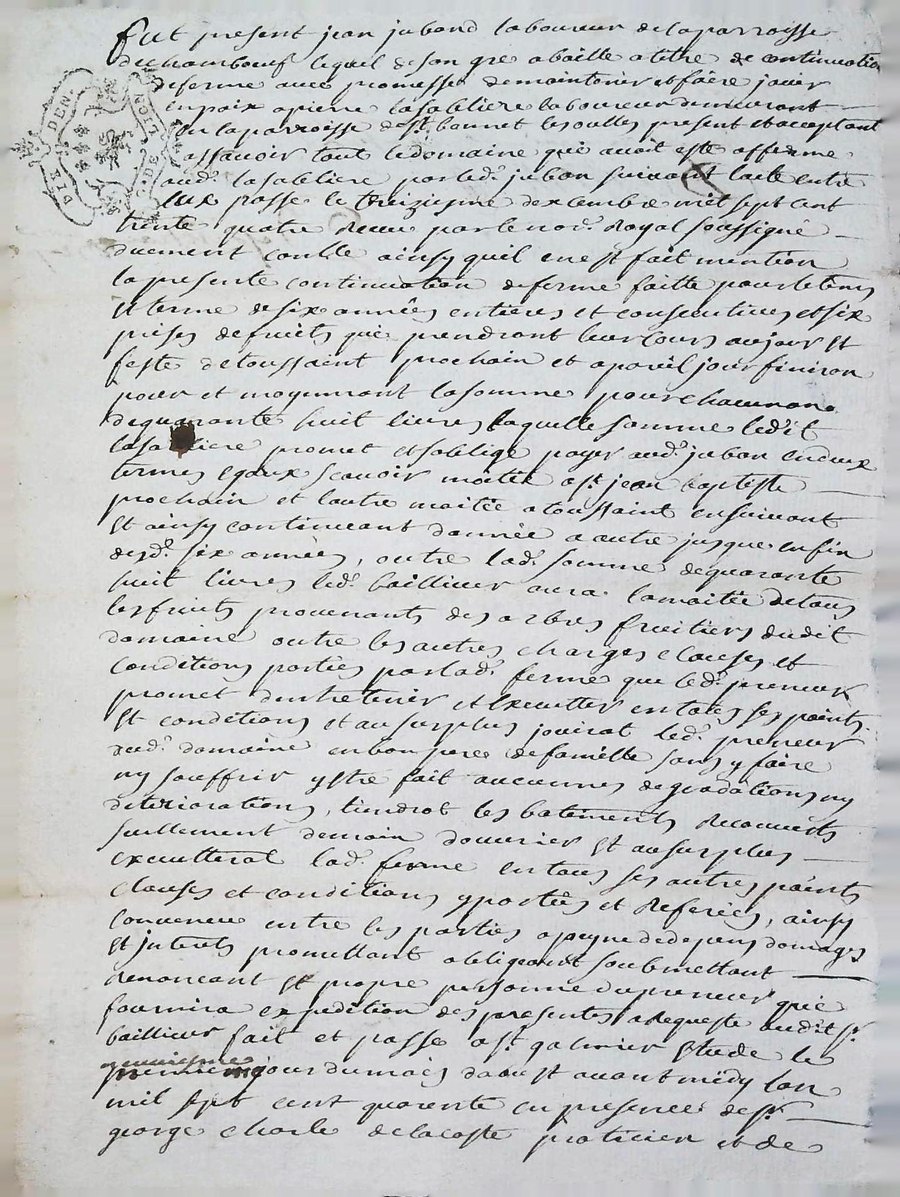 Fut present jean jubond laboureur de la parroisse
de chambœuf lequel de son gre a baille a titre de continuation
de ferme avec promesse de maintenir et faire jouir
en paix a pierre lasabliere laboureur demeurant
en la parroisse de st bonnet les oulles present et acceptant
assavoir tout le domaine qui avoit este afferme
aud. lasabliere par led. jubon suivant lacte entre
eux passe le treizieme dexcembre mil sept cent
trente quatre Receu par le nore. Royal soussigne
duement conlle ainsy quil en est fait mention
la presente continuation de ferme faitte pour le tems
et terme de six années entieres et consecutives et six
prises de fruits qui prendront leur cours au jour et
feste de toussaint prochain et a pareil jour finiron
pour et moyennant la somme pour chacune
de quarante huit livres laquelle somme ledit
lasabliere promet et soblige payer aud. jubon en deux
termes egaux scavoir moitié a st. jean baptiste
prochain et lautre moitiée a toussaint ensuivant
et ainsy continuant dannée a autre jusque en fin
desd. six années, outre lad. somme de quarante
huit livres led. bailleur aura la moitée de tous
les fruits provenants des arbres fruitiers dudit
domaine outre les autres charges clauses et
conditions portées par lad. ferme que led. preneur
promet dentretenir et executter en tous ses points
et conditions et au surplus jouirat led. preneur
dud. domaine en bon pere de famille sans y faire
ny souffrir y etre fait aucunes degradations ny
deteriorations, tiendrat les batiments Recouverts
seullement de main douvrier et au surplus
executterat lad. ferme en tous ses autres points
clauses et conditions y portées et Referées, ainsy
convenu entre les parties a peyne de depens domages
et interets promettant obligeant soubmettant
Renoncant et propre personne du preneur qui
fournira expedition des presentes a Requeste dudit sr.
bailleur fait et passe a st. galmier Etude le
neuvieme
jour du mois daoust avant midy lan
mil sept cent quarente en presence de sr.
george charle delacoste praticien et de
DEN
LION
DE